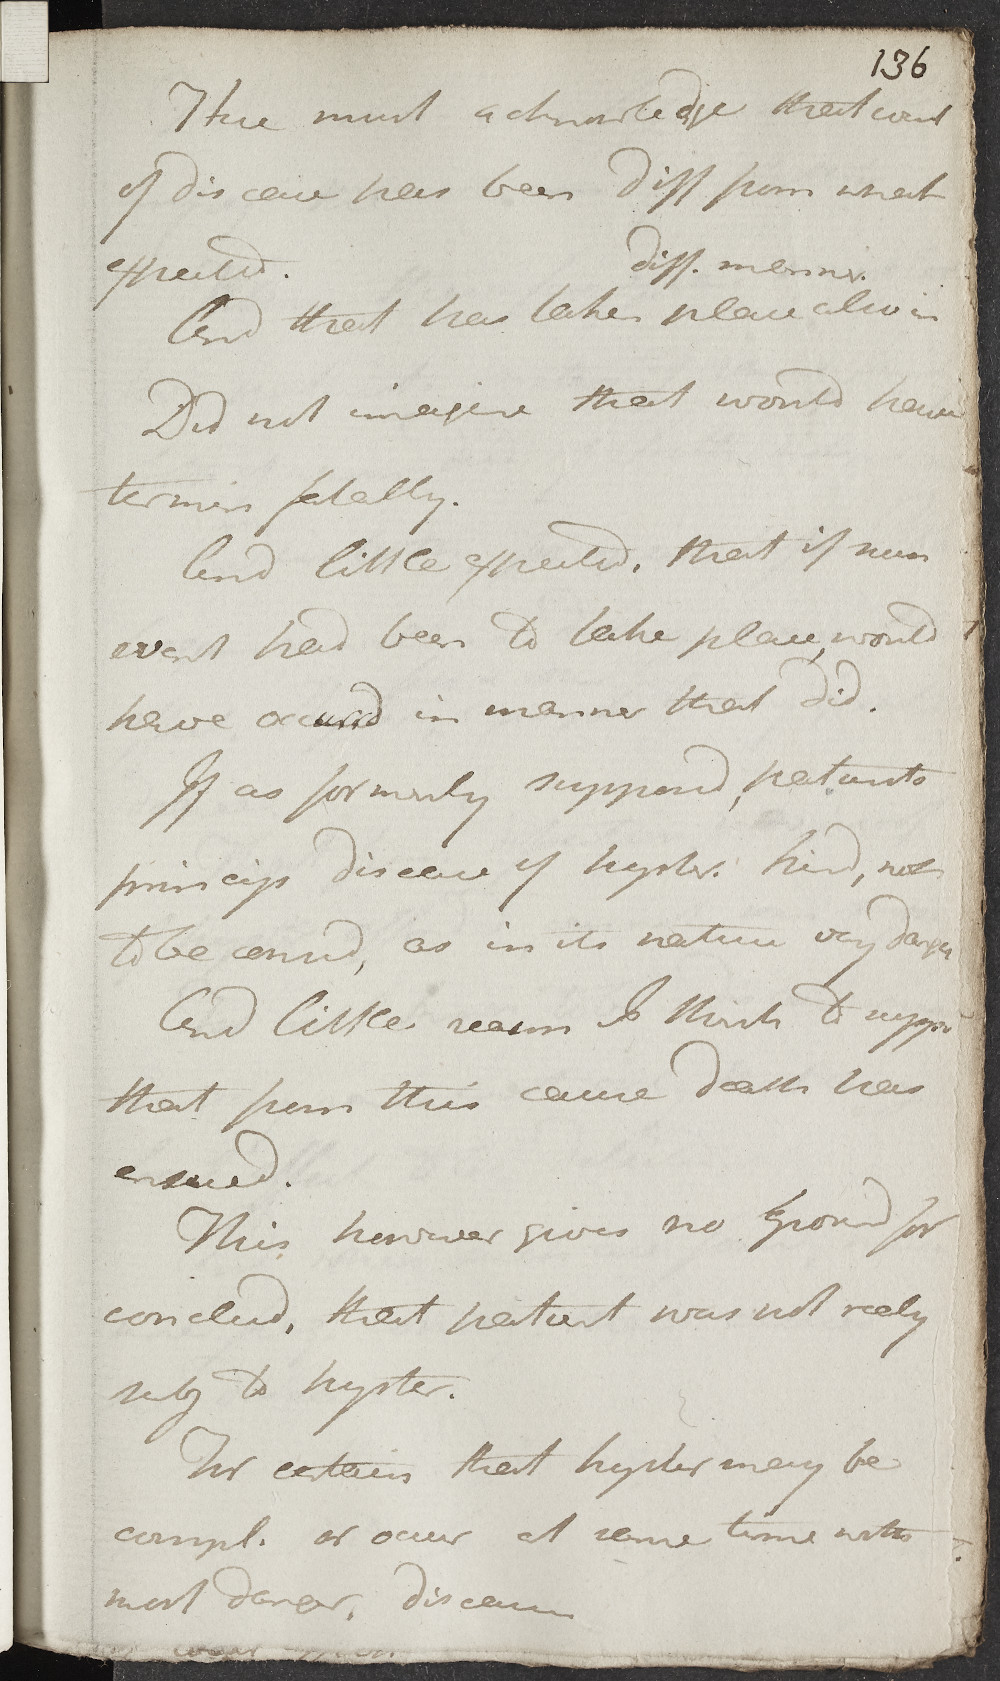 136
Here must acknowledge that event
of disease has been diff from what
expected.
diff. manner.
And that has taken place also in
Did not imagine that would have
termin fatally.
And little expected, that if such
event had been to take place, would
have occurrd in manner that did.
If as formerly supposed, patients
princip disease of hyster. kind, not
to be consid, as in its nature very danger
And little reason I think to suppo
that from this cause death has
ensued.
This however gives no ground for
conclud, that patient was not realy
subj to hyster.
For certain that hyster may be
compl. or occur at same time with
most danger. diseases